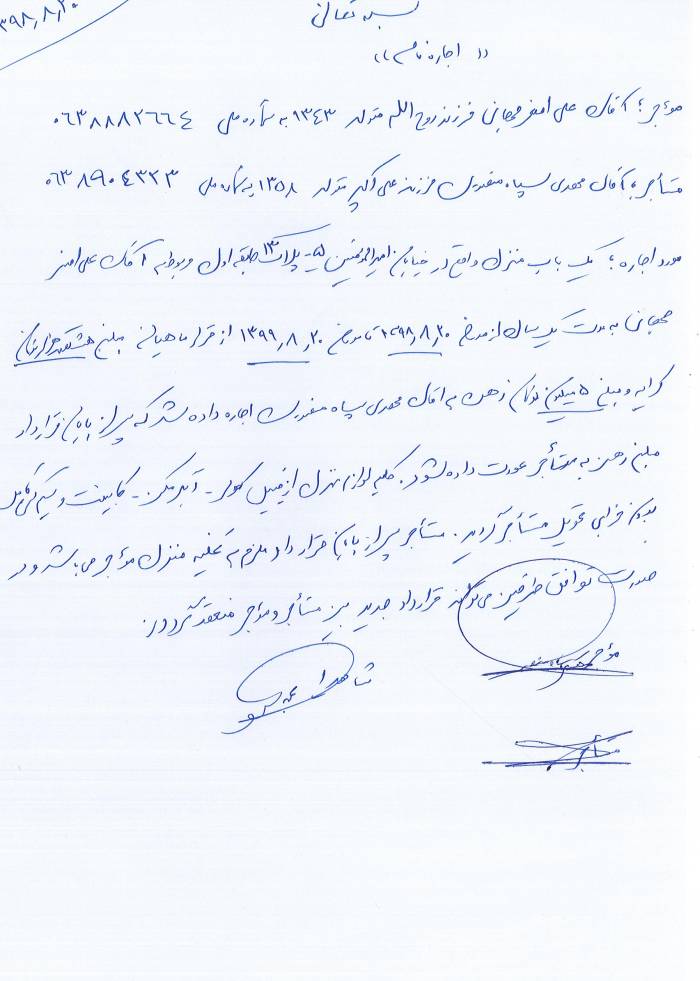 ۱۳۹۸٫۸٫۲۰
بسمه تعالی
«اجاره نامه»
مؤجر: آقای علی اصغر فرزند روح الله متولد ۱۳۴۳ به شماره ملی ۰۶۳۸۸۸۲۶۶۴
مستأجر: آقای مهدی سپاه منصوری فرزند علی اکبر متولد ۱۳۵۸ به شماره ملی ۰۶۳۸۹۰۴۳۲۳
مورد اجاره: یک باب منزل واقع در خیابان امیرالمومنین ۵ - پلاک ۱۳ طبقه اول مربوط به آقای علی اصغر
به مدت یک سال از مورخ ۱۳۹۸٫۸٫۲۰ تا مورخ ۱۳۹۹٫۸٫۲۰ از قرار ماهیانه مبلغ هشتصد هزار تومان
کرایه و مبلغ ۵ میلیون تومان رهن به آقای مهدی سپاه منصوری اجاره داده شد که پس از پایان قرارداد
مبلغ رهن به مستأجر عودت داده شود. کلیه لوازم منزل از قبیل کولر - آبگرمکن - کابینت و
بدون خرابی تحویل مستأجر گردید. مستأجر پس از پایان قرارداد ملزم به تخلیه منزل مؤجر می باشد و در
صورت توافق طرفین می تواند قرارداد جدید بین مستأجر و مؤجر منعقد گردد.
مؤجر
شاهد
مستأجر